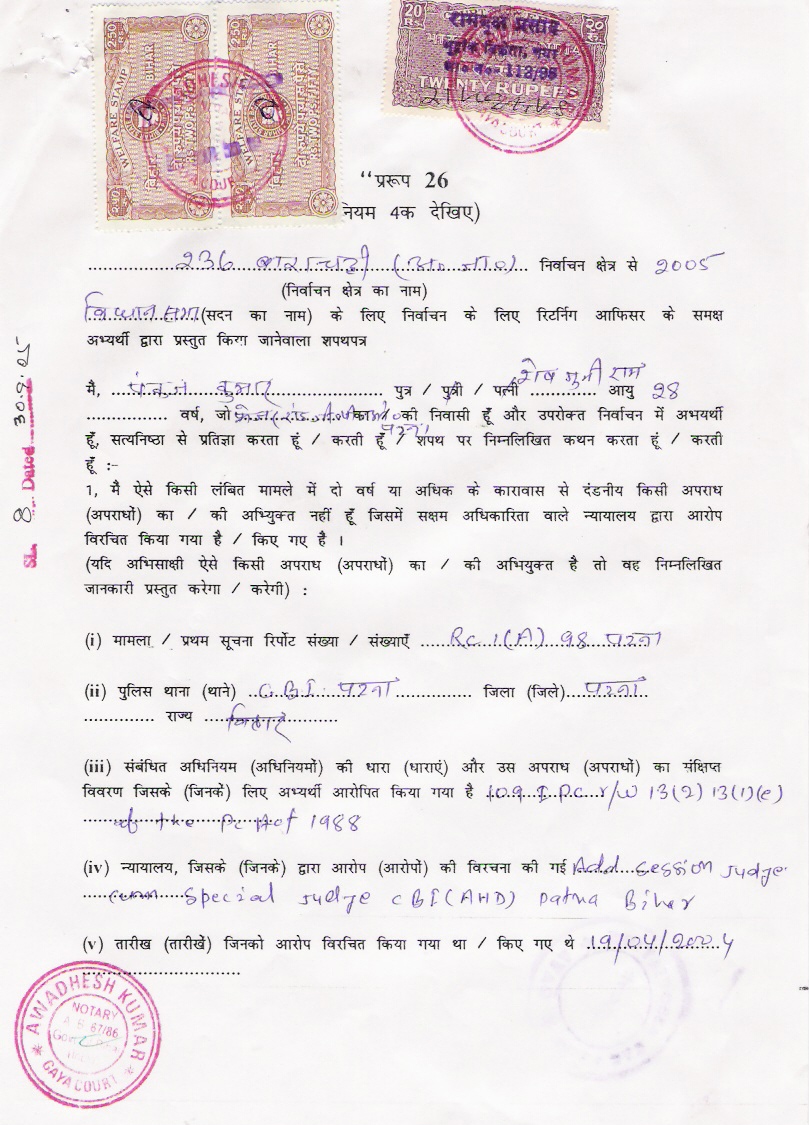 2.50
WELFARE STAMP
BIHAR
दो रूपये पचास पैसे
RS. TWO PS. FIFTY
बिहार
2.50
WELFARE STAMP
BIHAR
दो रूपये पचास पैसे
RS. TWO PS. FIFTY
बिहार
20 RS.
२० रु.
रामवृक्ष प्रसाद
112/95
TWENTY RUPEES
GAYA COURT
"प्ररूप 26
नियम 4क देखिए)
236 बाराचट्टी (अ० जा०) निर्वाचन क्षेत्र से 2005
(निर्वाचन क्षेत्र का नाम)
विधान सभा (सदन का नाम) के लिए निर्वाचन के लिए रिटर्निग आफिसर के समक्ष
अभ्यर्थी द्वारा प्रस्तुत किया जानेवाला शपथपत्र
SL. 8 Dated 30.9.05
मै, पंकज कुमार पुत्र / पुत्री / पत्नी शेष मुनी राम आयु 28
वर्ष, जो की निवासी हूँ और उपरोक्त निर्वाचन में अभयर्थी
हूँ, सत्यनिष्ठा से प्रतिज्ञा करता हूं / करती हूँ / शपथ पर निम्नलिखित कथन करता हूं / करती
हूँ :-
1, मै ऐसे किसी लंबित मामले में दो वर्ष या अधिक के कारावास से दंडनीय किसी अपराध
(अपराधों) का / की अभ्यिुक्त नहीं हूँ जिसमें सक्षम अधिकारिता वाले न्यायालय द्वारा आरोप
विरचित किया गया है / किए गए है ।
(यदि अभिसाक्षी ऐसे किसी अपराध (अपराधों) का / की अभियुक्त है तो वह निम्नलिखित
जानकारी प्रस्तुत करेगा / करेगी) :
(i) मामला / प्रथम सूचना रिर्पोट संख्या / संख्याएँ Rc 1(A) 98 पटना
(ii) पुलिस थाना (थाने) C.B.I. पटना जिला (जिले) पटना
राज्य बिहार
(iii) संबंधित अधिनियम (अधिनियमों) की धारा (धाराएं) और उस अपराध (अपराधों) का संक्षिप्त
विवरण जिसके (जिनके) लिए अभ्यर्थी आरोपित किया गया है 109 I.P.C. r/w 13(2) 13(1)(e)
of the PC Act of 1988
(iv) न्यायालय, जिसके (जिनके) द्वारा आरोप (आरोपों) की विरचना की गई Add. Session Judge
cum Special Judge CBI (AHD) Patna Bihar
(v) तारीख (तारीखें) जिनको आरोप विरचित किया गया था / किए गए थे 19/04/2004
AWADHESH KUMAR
NOTARY
67/86
GAYA COURT